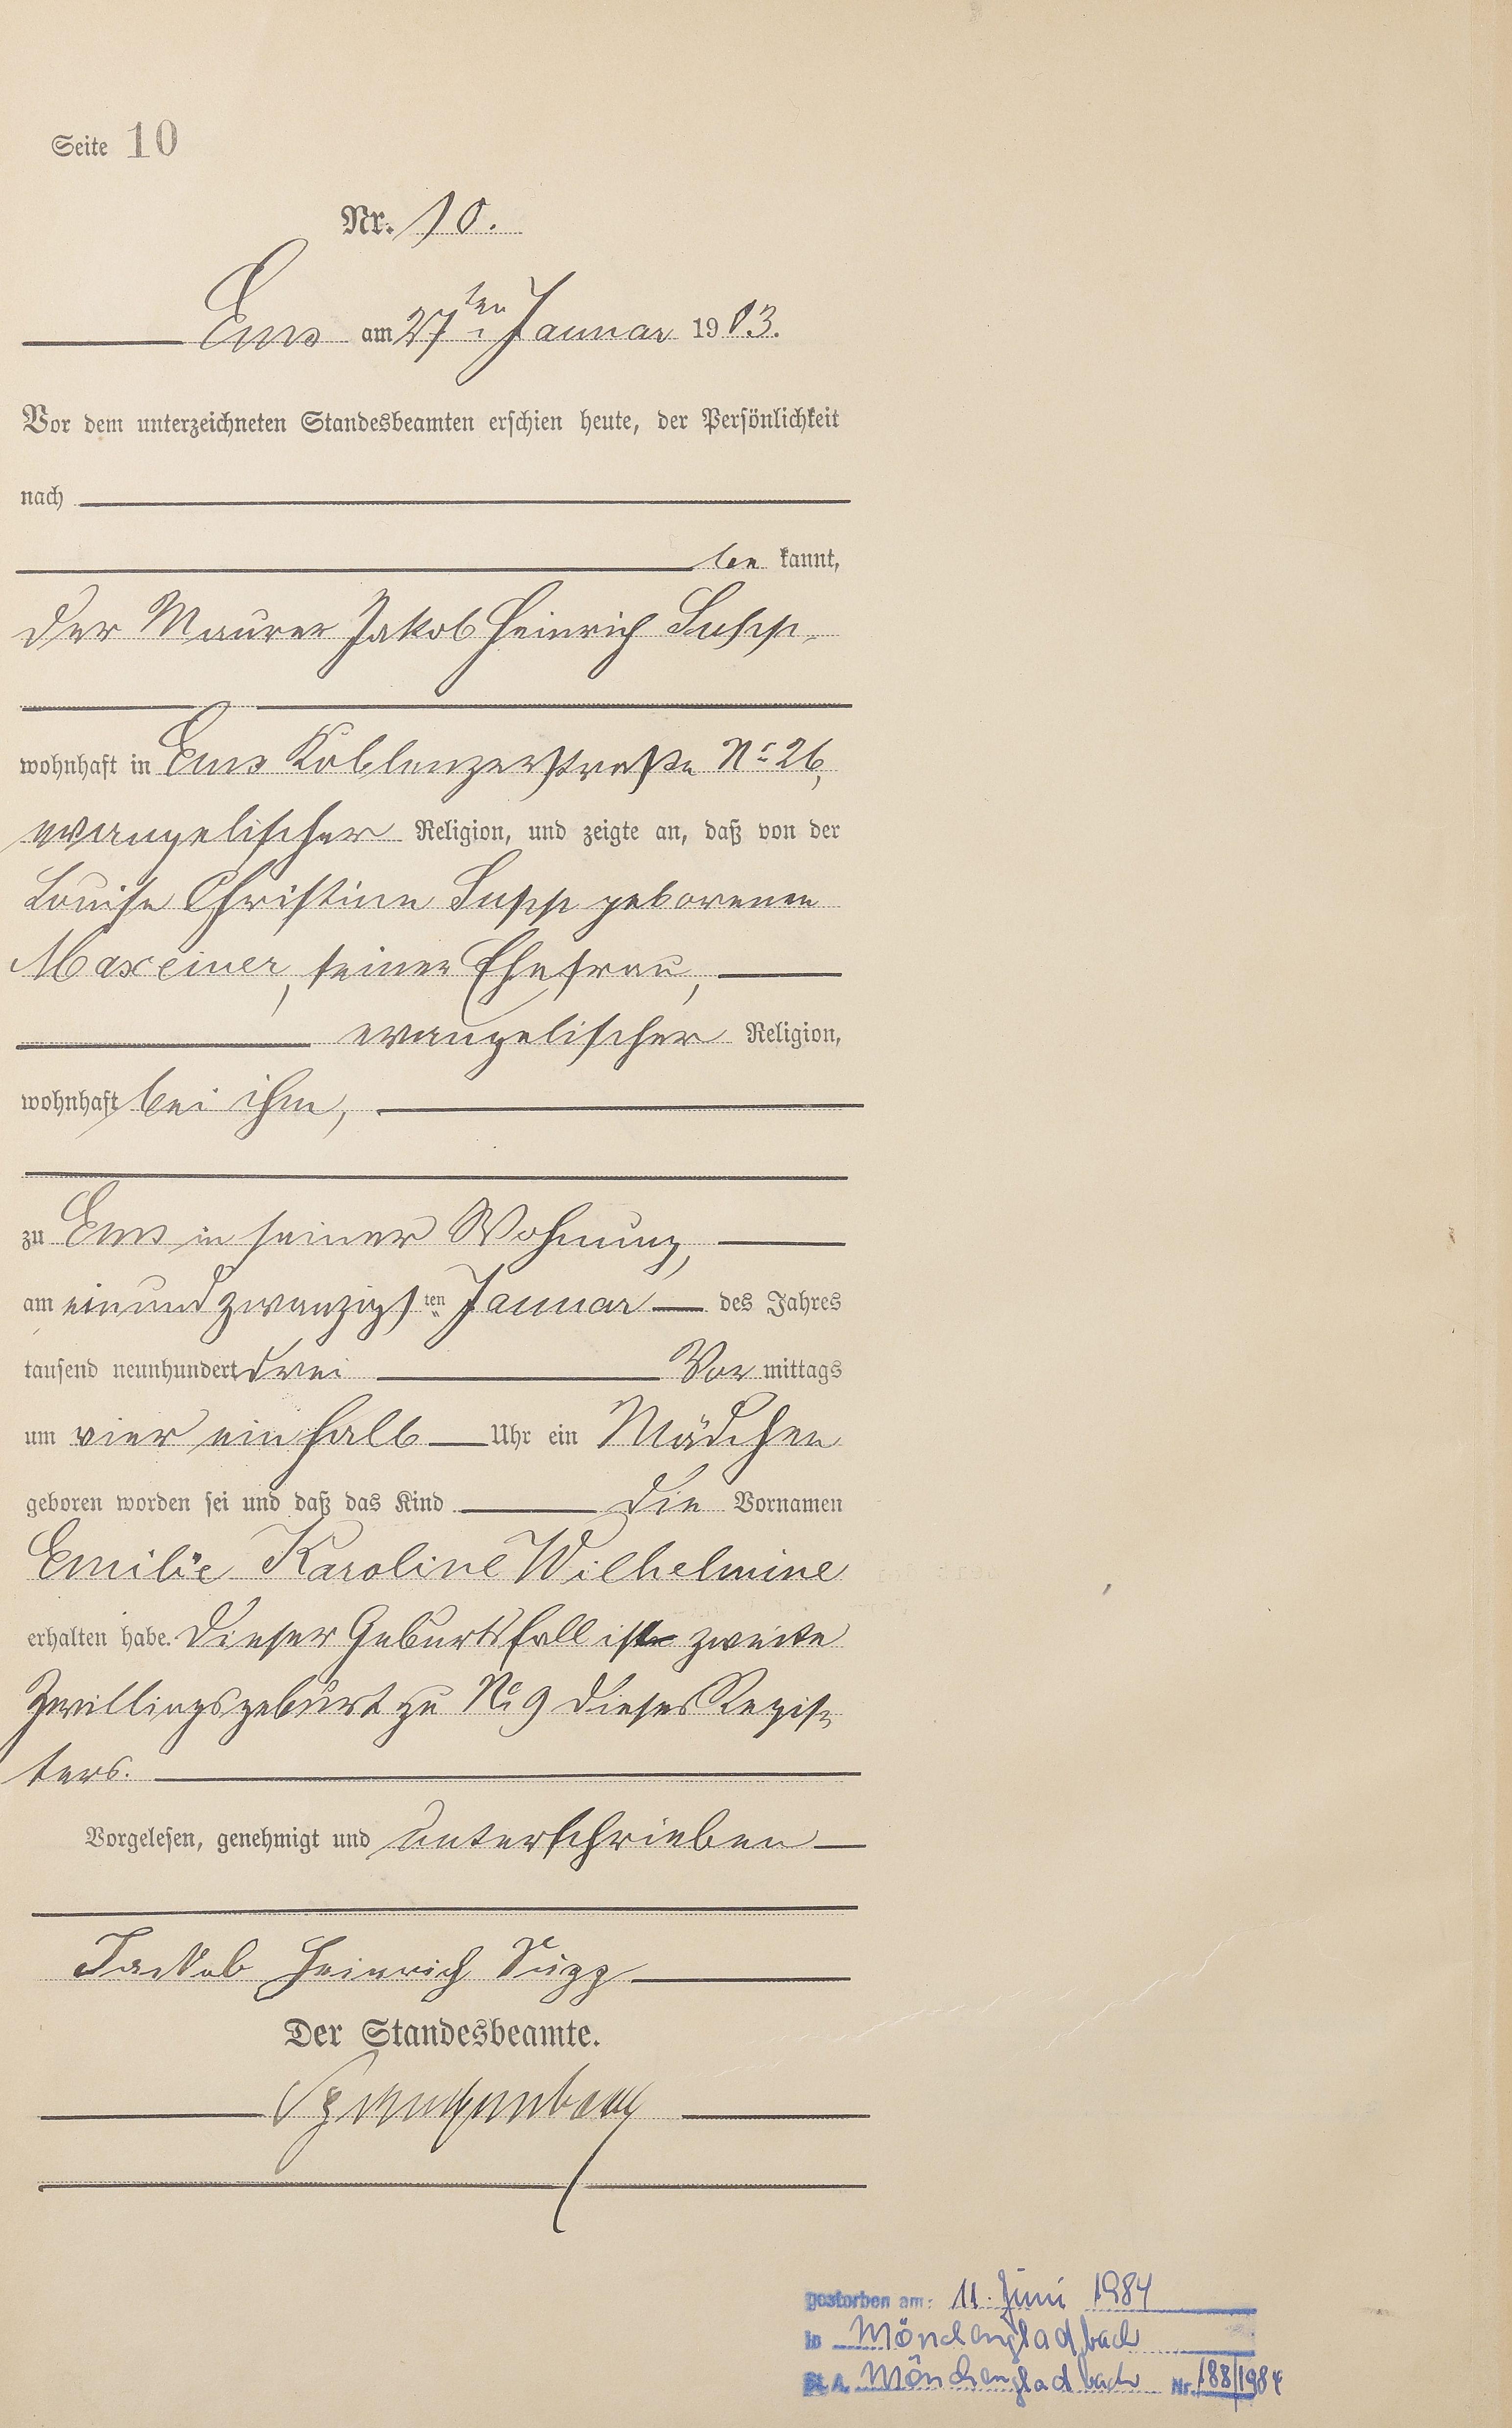 Seite 10
Nr. 10.
Ems am 27ten Januar 1903.
Vor dem unterzeichneten Standesbeamten erschien heute, der Persönlichkeit
nach
be kannt,
der Maurer Jakob Heinrich Supp,
wohnhaft in Ems Koblenzerstraße No 26,
evangelischer Religion, und zeigte an, daß von der
Louise Christine Supp geborenen
Maxeiner, seiner Ehefrau,
evangelischer Religion,
wohnhaft bei ihm,
zu Ems in seiner Wohnung,
am einundzwanzigsten Januar des Jahres
tausend neunhundert drei Vor mittags
um vier ein halb Uhr ein Mädchen
geboren worden sei und daß das Kind die Vornamen
Emilie Karoline Wilhelmine
erhalten habe. Dieser Geburtsfall ist zweite
Zwillingsgeburt zu No 9 dieses Regis-
ters.
Vorgelesen, genehmigt und unterschrieben
Jackob Heinrich Supp
Der Standesbeamte.
gestorben am: 11. Juni 1984
in Mönchengladbach
St. A. Mönchengladbach Nr. 188/1984